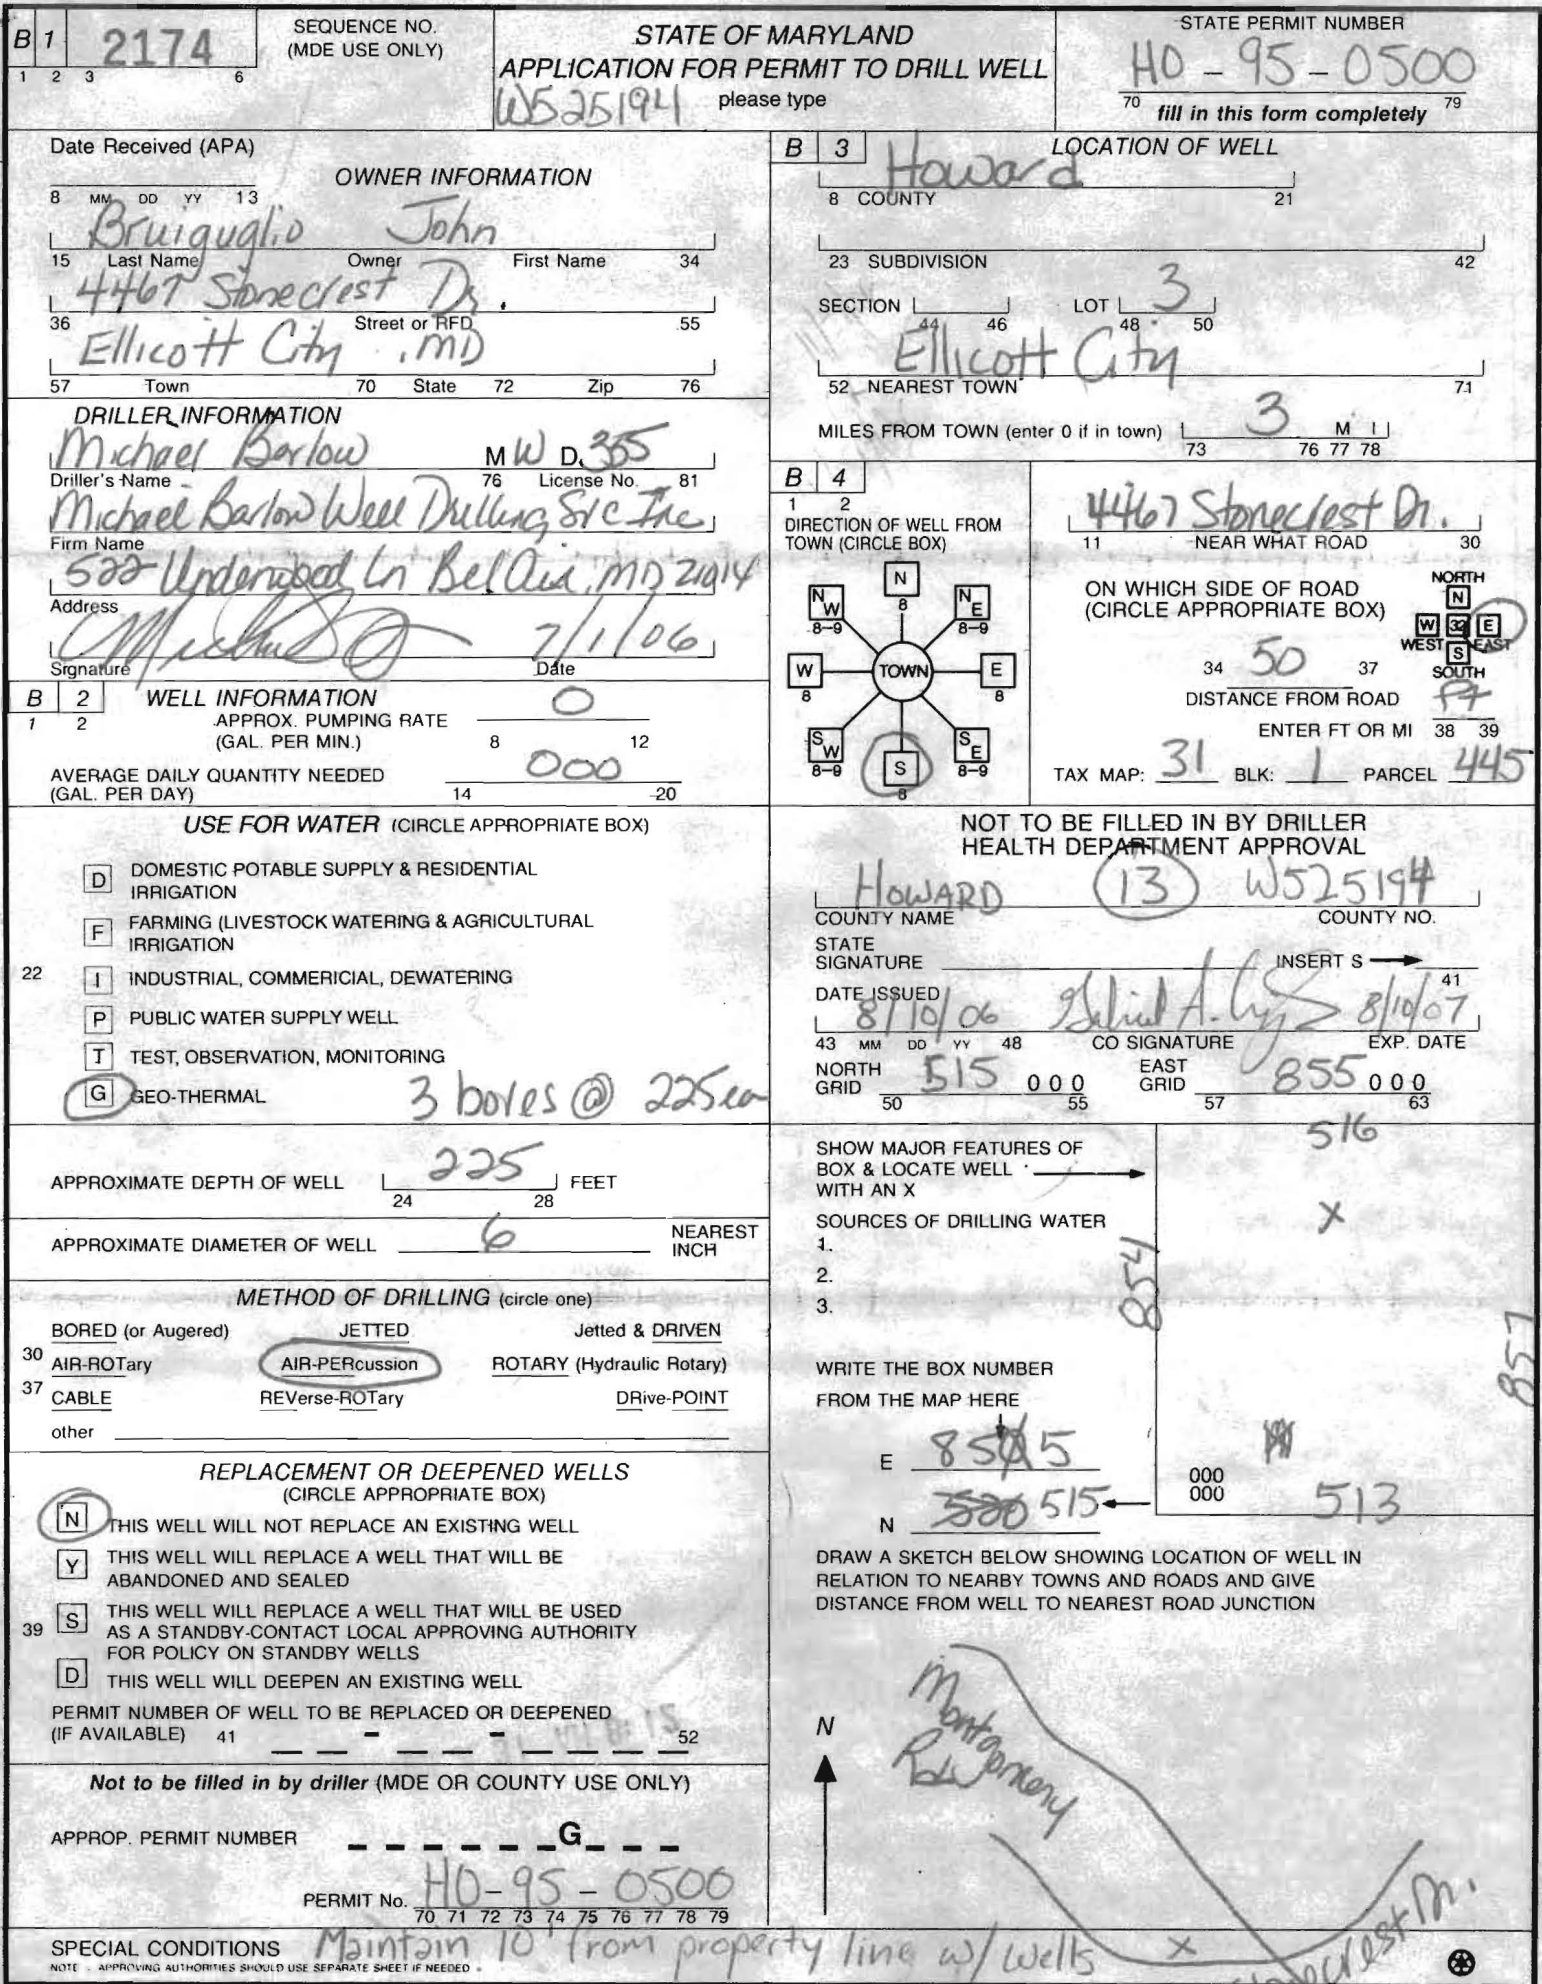 B 1 2174
1 2 3 6
SEQUENCE NO.
(MDE USE ONLY)
STATE OF MARYLAND
APPLICATION FOR PERMIT TO DRILL WELL
W525194 please type
STATE PERMIT NUMBER
HO - 95 - 0500
70 fill in this form completely 79
Date Received (APA)
OWNER INFORMATION
8 MM DD YY 13
Bruiguglio John
15 Last Name Owner First Name 34
4467 Stonecrest Dr.
36 Street or RFD 55
Ellicott City , MD
57 Town 70 State 72 Zip 76
DRILLER INFORMATION
Michael Barlow M W D. 355
Driller's Name 76 License No. 81
Michael Barlow Well Drilling Svc Inc
Firm Name
522 Underwood Ln Bel Air, MD 21014
Address
7/1/06
Signature Date
B 2 WELL INFORMATION
1 2 APPROX. PUMPING RATE 0
(GAL. PER MIN.) 8 12
AVERAGE DAILY QUANTITY NEEDED 000
(GAL. PER DAY) 14 20
USE FOR WATER (CIRCLE APPROPRIATE BOX)
D DOMESTIC POTABLE SUPPLY & RESIDENTIAL
IRRIGATION
F FARMING (LIVESTOCK WATERING & AGRICULTURAL
IRRIGATION
22 I INDUSTRIAL, COMMERICIAL, DEWATERING
P PUBLIC WATER SUPPLY WELL
T TEST, OBSERVATION, MONITORING
G GEO-THERMAL 3 bores @ 225 ea
APPROXIMATE DEPTH OF WELL 225 FEET
24 28
APPROXIMATE DIAMETER OF WELL 6 NEAREST
INCH
METHOD OF DRILLING (circle one)
BORED (or Augered) JETTED Jetted & DRIVEN
30 AIR-ROTary AIR-PERcussion ROTARY (Hydraulic Rotary)
37 CABLE REVerse-ROTary DRive-POINT
other
REPLACEMENT OR DEEPENED WELLS
(CIRCLE APPROPRIATE BOX)
N THIS WELL WILL NOT REPLACE AN EXISTING WELL
Y THIS WELL WILL REPLACE A WELL THAT WILL BE
ABANDONED AND SEALED
39 S THIS WELL WILL REPLACE A WELL THAT WILL BE USED
AS A STANDBY-CONTACT LOCAL APPROVING AUTHORITY
FOR POLICY ON STANDBY WELLS
D THIS WELL WILL DEEPEN AN EXISTING WELL
PERMIT NUMBER OF WELL TO BE REPLACED OR DEEPENED
(IF AVAILABLE) 41 - - 52
Not to be filled in by driller (MDE OR COUNTY USE ONLY)
APPROP. PERMIT NUMBER G
PERMIT No. HO-95-0500
70 71 72 73 74 75 76 77 78 79
B 3 LOCATION OF WELL
Howard
8 COUNTY 21
23 SUBDIVISION 42
SECTION LOT 3
44 46 48 50
Ellicott City
52 NEAREST TOWN 71
MILES FROM TOWN (enter 0 if in town) 3 M I
73 76 77 78
B 4
1 2
DIRECTION OF WELL FROM
TOWN (CIRCLE BOX)
N
8
NW
8-9
NE
8-9
W
8
TOWN
E
8
SW
8-9
S
8
SE
8-9
4467 Stonecrest Dr.
11 NEAR WHAT ROAD 30
ON WHICH SIDE OF ROAD
(CIRCLE APPROPRIATE BOX)
NORTH
N
W 32 E
WEST EAST
S
SOUTH
34 50 37
DISTANCE FROM ROAD FT
ENTER FT OR MI 38 39
TAX MAP: 31 BLK: 1 PARCEL 445
NOT TO BE FILLED IN BY DRILLER
HEALTH DEPARTMENT APPROVAL
HOWARD 13 W525194
COUNTY NAME COUNTY NO.
STATE
SIGNATURE INSERT S
41
DATE ISSUED
8/10/06 8/10/07
43 MM DD YY 48 CO SIGNATURE EXP. DATE
NORTH
GRID 515 000
50 55
EAST
GRID 855 000
57 63
SHOW MAJOR FEATURES OF
BOX & LOCATE WELL
WITH AN X
SOURCES OF DRILLING WATER
1.
2.
3.
516
X
854
857
WRITE THE BOX NUMBER
FROM THE MAP HERE
E 855
N 520 515
000
000
513
DRAW A SKETCH BELOW SHOWING LOCATION OF WELL IN
RELATION TO NEARBY TOWNS AND ROADS AND GIVE
DISTANCE FROM WELL TO NEAREST ROAD JUNCTION
N
Montgomery
Rd
X
Stonecrest Dr.
SPECIAL CONDITIONS Maintain 10' from property line w/ wells
NOTE - APPROVING AUTHORITIES SHOULD USE SEPARATE SHEET IF NEEDED